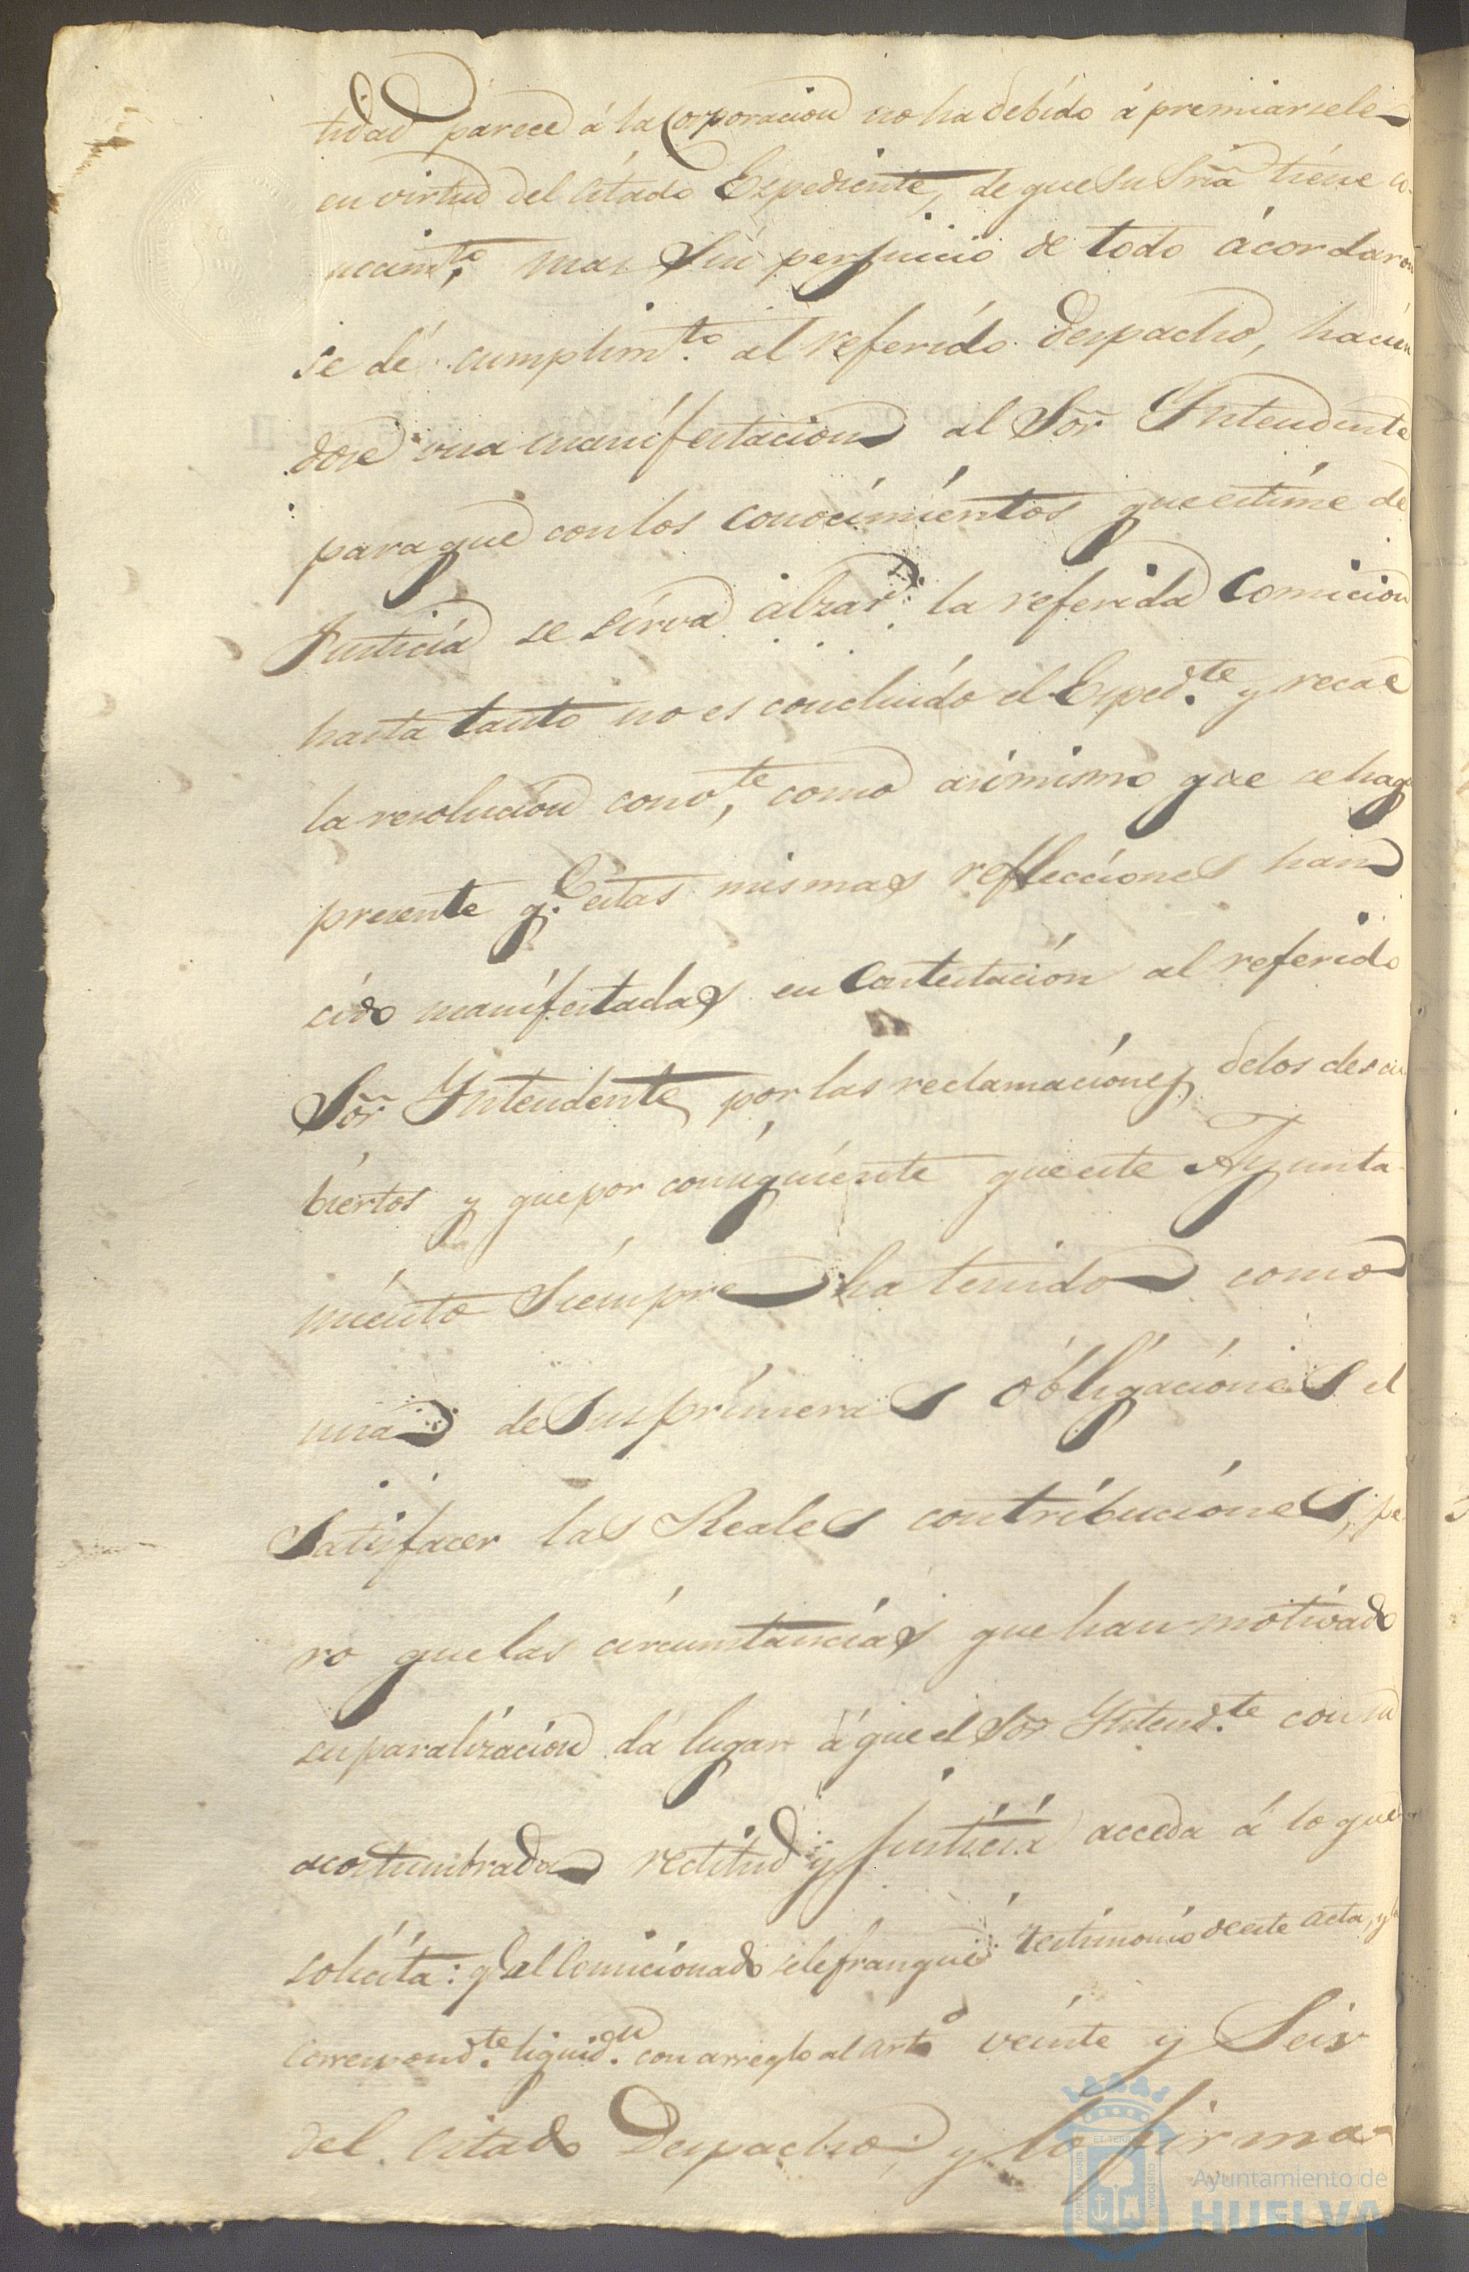 tidad parece á la Corporacion no ha debído á premiarsele
en virtud del citado Expediente, de que Su Sría tiéne co-
nocimto, mas Sin perjuicio de todo ácordaron
se dé cumplimto al referído despacho, hacien
dose una manífestacion al Sor Yntendente
para que con los conocimíentos que estíme de
Justicía se sírva alzar la referida Comicion
hasta tanto no es concluído el Expedte y recae
la resolucíon convte, como asímismo que se haga
presente q. Estas mismas reflecciones han
cído manífestadas en Contestación al referido
Sor Yntendente por las reclamacíones delos descu
bíertos y que por consíguíente que este Ayunta-
míento Síempre ha tenido como
una de Sus prímeras óblígacíones el
Satisfacer las Reales contríbucíones, pe
ro que las círcunstancías que han motívado
su paralízacíon dá lugar á que el Sor Yntendte con su
acostumbrada rectitud y Justícía acceda á lo que
solícíta: y al Comicíonado se le franqueé testímonío de este Acta, y la
Correspondte liquidon con arreglo al Arto veínte y Seis
del Citado Despacho; y lo firma-
Ayuntamiento de
HUELVA